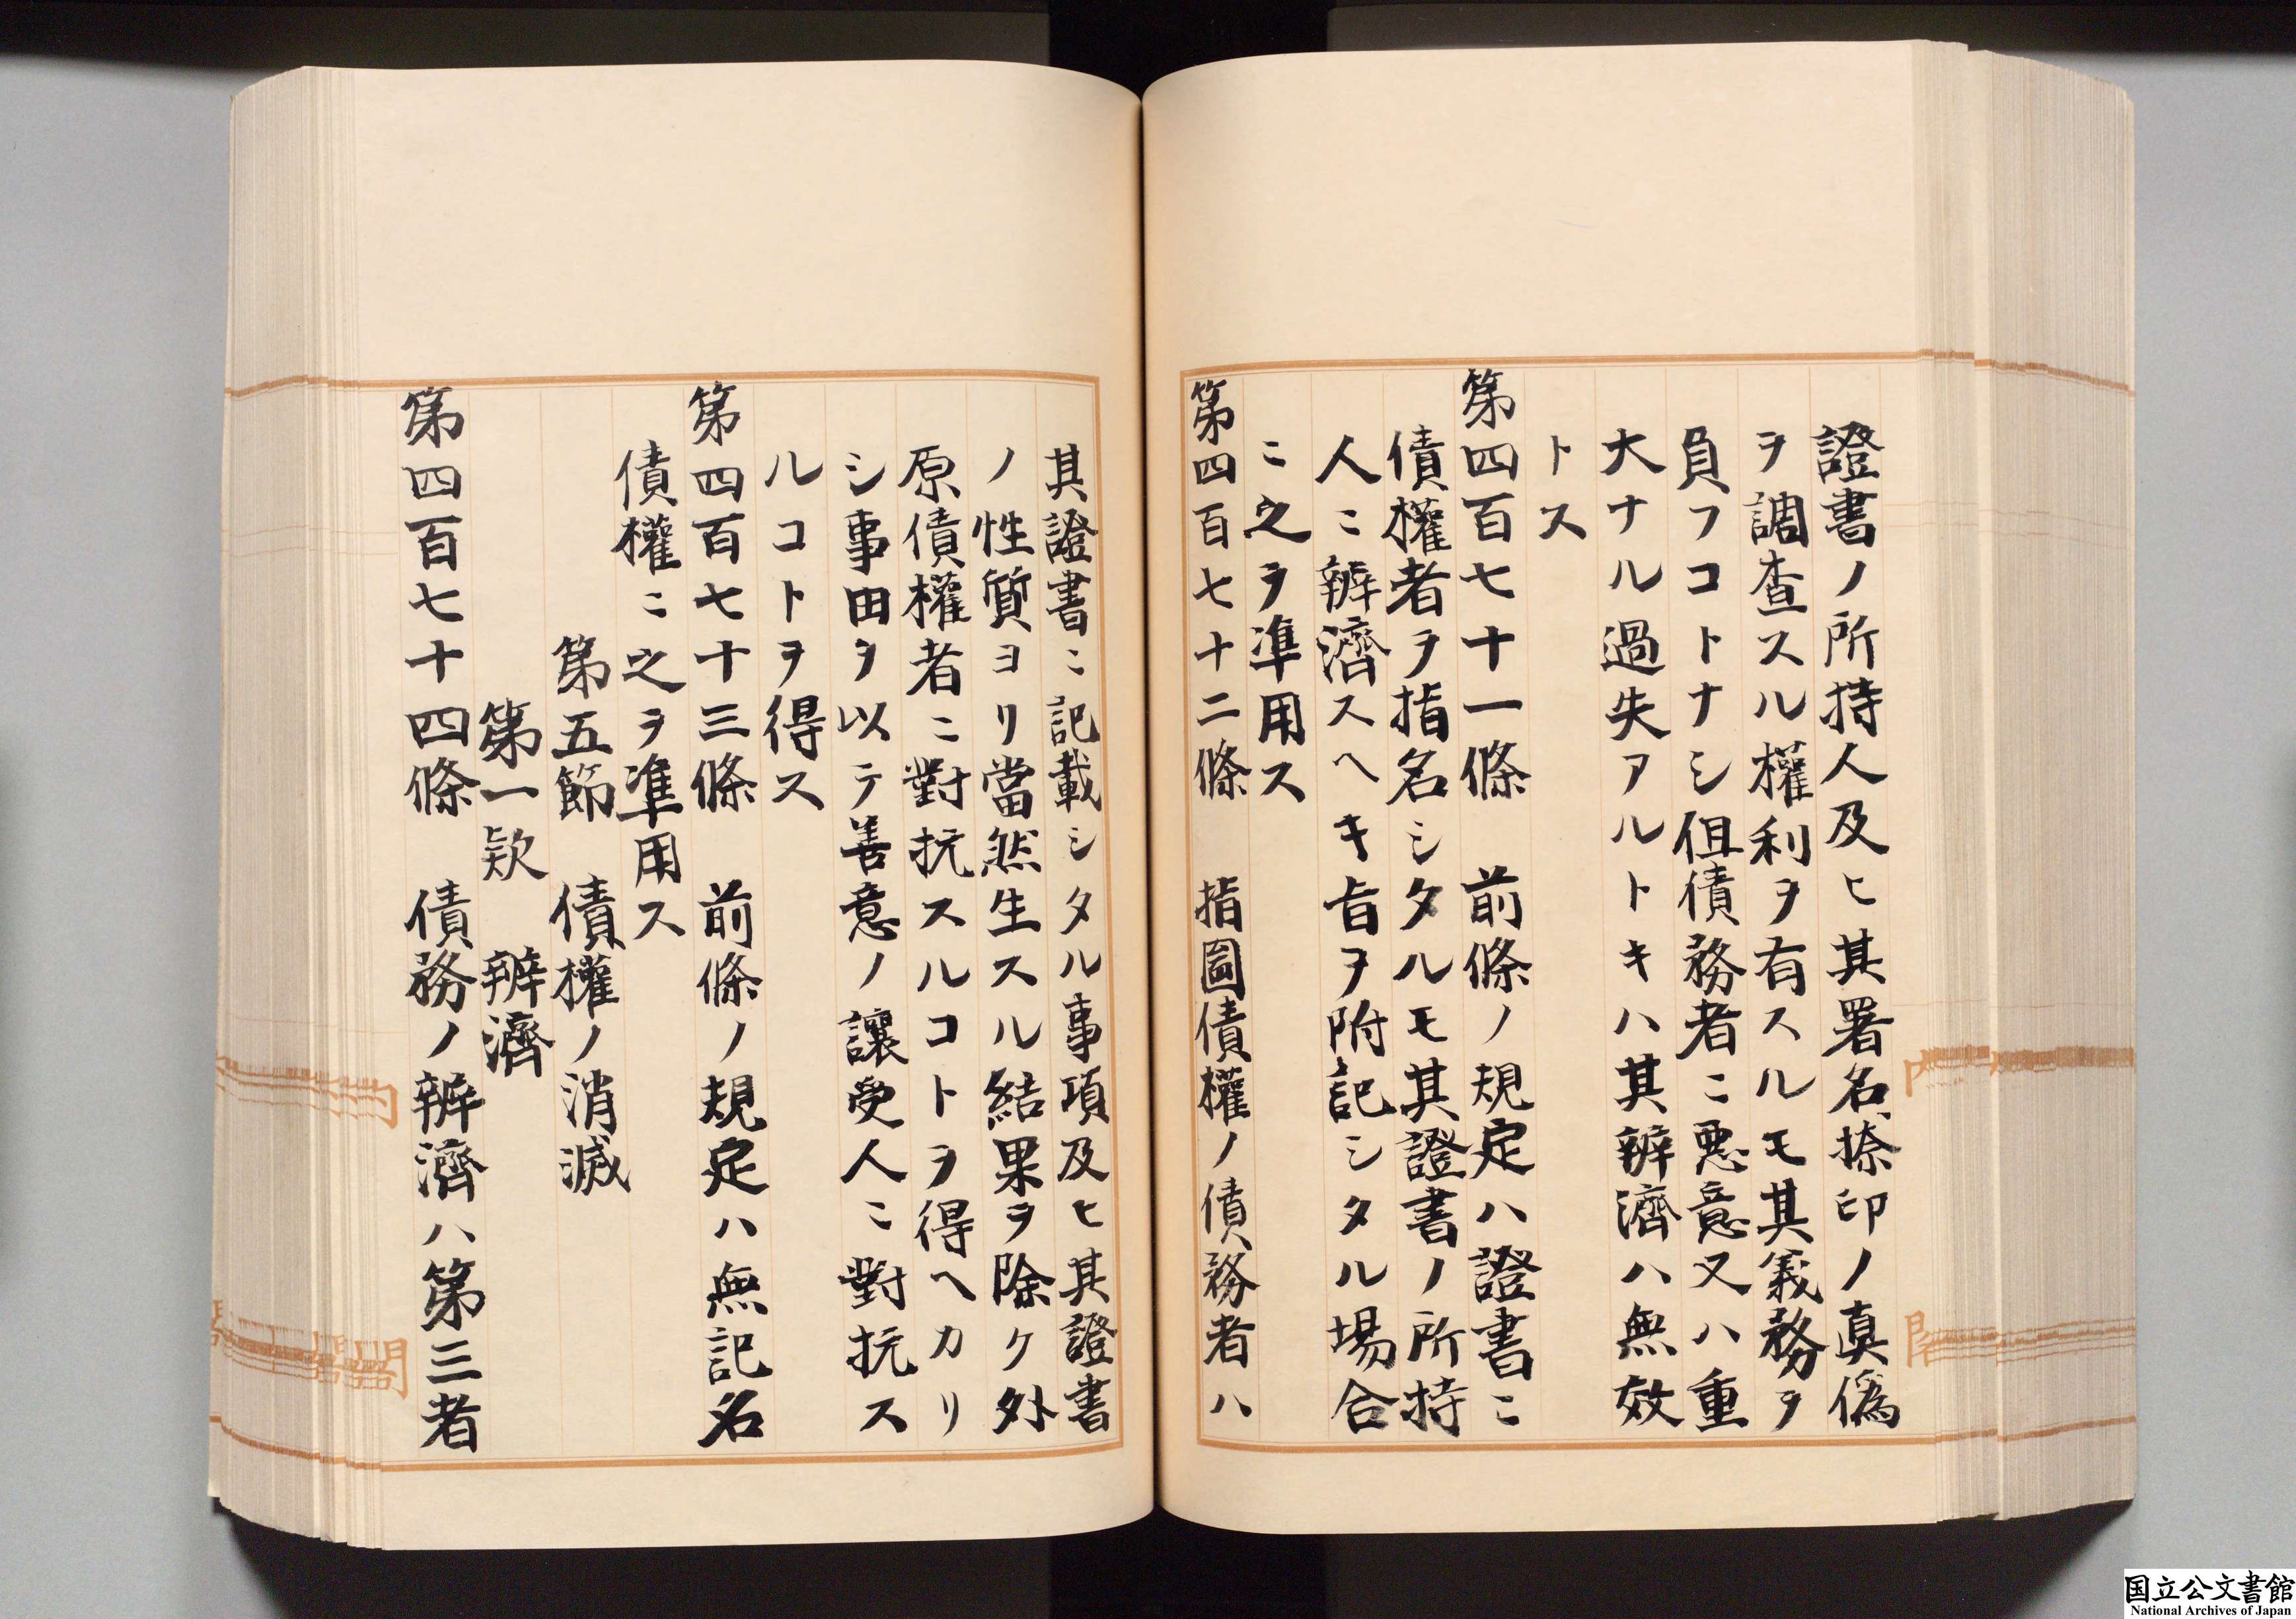 證書ノ所持人及ヒ其署名捺印ノ真偽
ヲ調査スル權利ヲ有スルモ其義務ヲ
負フコトナシ但債務者ニ惡意又ハ重
大ナル過失アルトキハ其辨濟ハ無效
トス
第四百七十一條　前條ノ規定ハ證書ニ
債權者ヲ指名シタルモ其證書ノ所持
人ニ辨濟スヘキ旨ヲ附記シタル場合
ニ之ヲ準用ス
第四百七十二條　指圖債權ノ債務者ハ
其證書ニ記載シタル事項及ヒ其證書
ノ性質ヨリ當然生スル結果ヲ除ク外
原債權者ニ對抗スルコトヲ得ヘカリ
シ事由ヲ以テ善意ノ讓受人ニ對抗ス
ルコトヲ得ス
第四百七十三條　前條ノ規定ハ無記名
債權ニ之ヲ準用ス
第五節　債權ノ消滅
第一款　辨濟
第四百七十四條　債務ノ辨濟ハ第三者
内
閣
国立公文書館
National Archives of Japan